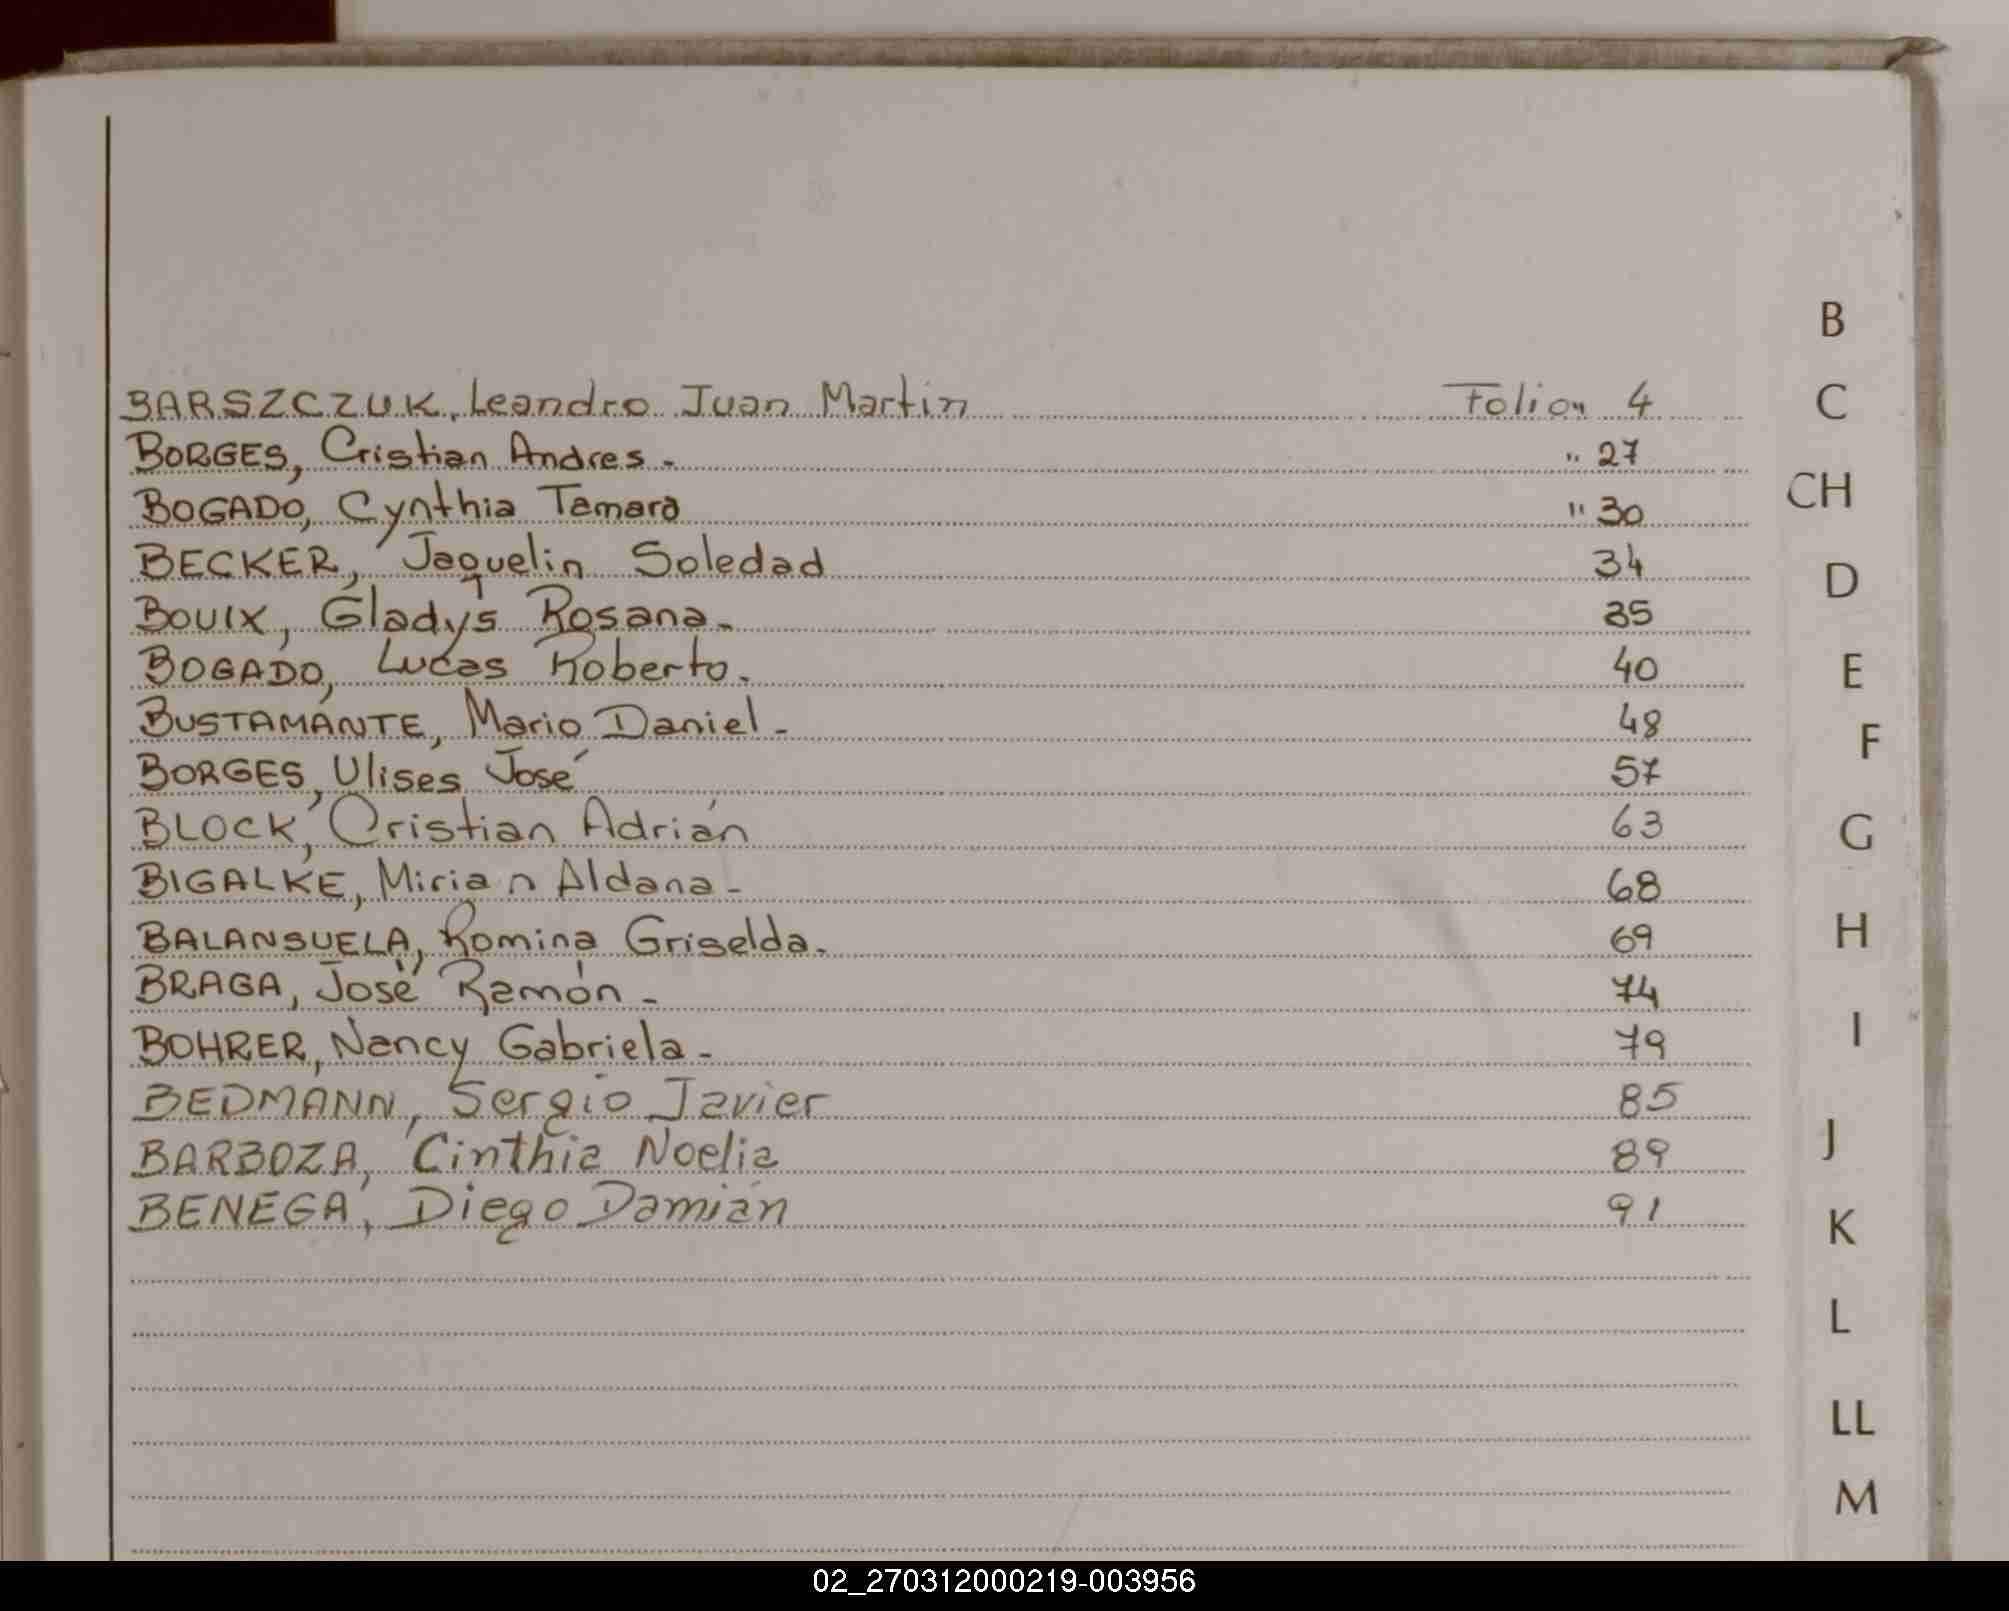 B
BARSZCZUK, Leandro Juan Martin Folio 4
C
BORGES, Cristian Andres - " 27
BOGADO, Cynthia Tamara " 30
CH
BECKER, Jaquelin Soledad 34
D
BOUIX, Gladys Rosana - 35
BOGADO, Lucas Roberto - 40
E
BUSTAMANTE, Mario Daniel - 48
F
BORGES, Ulises José 57
BLOCK, Cristian Adrián 63
G
BIGALKE, Mirian Aldana - 68
BALANSUELA, Romina Griselda. 69
H
BRAGA, José Ramón - 74
BOHRER, Nancy Gabriela - 79
I
BEDMANN, Sergio Javier 85
BARBOZA, Cinthia Noelia 89
J
BENEGA, Diego Damián 91
K
L
LL
M
02_270312000219-003956